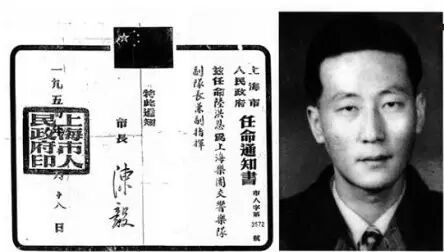 上海市
人民政府
任命通知書
市人字第2572號
茲任命陸洪恩爲上海樂團交響樂隊
副隊長兼副指揮
特此通知
市長
陳毅
一九五
八日
上海市人
民政府印